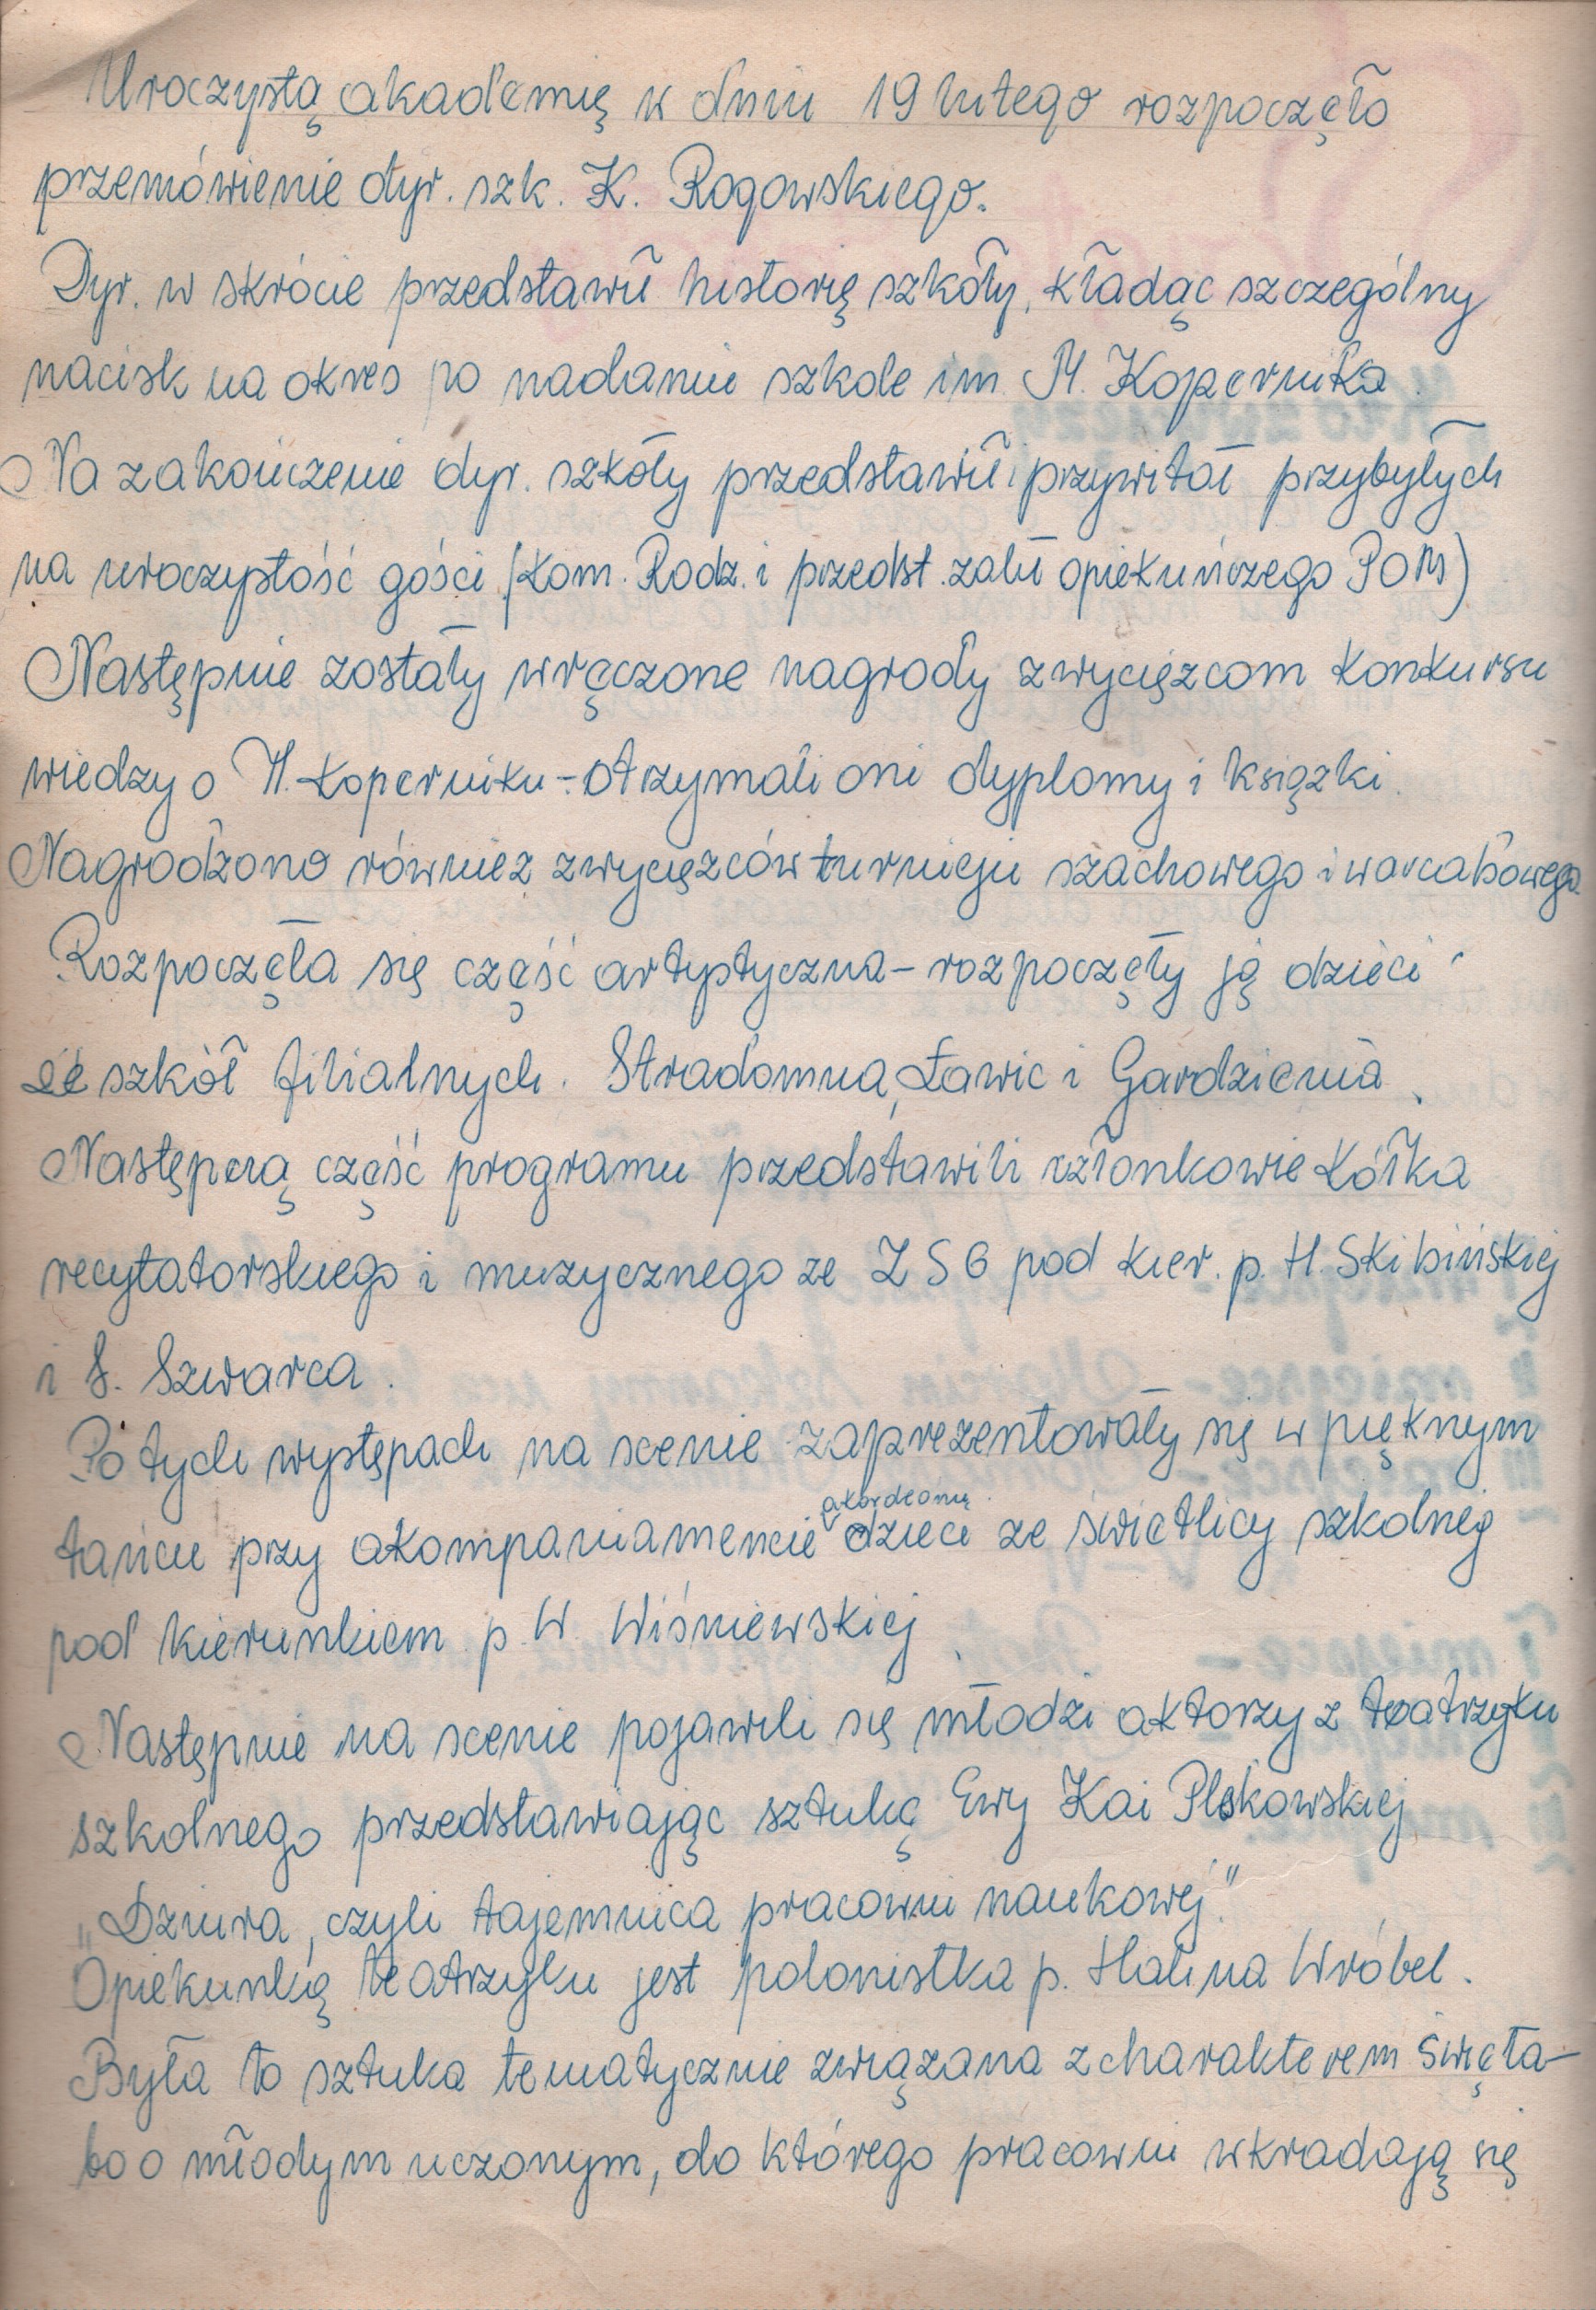 Uroczystą akademię w dniu 19 lutego rozpoczęło
przemówienie dyr. szk. K. Rogowskiego.
Dyr. w skrócie przedstawił historię szkoły, kładąc szczególny
nacisk na okres po nadaniu szkole im. M. Kopernika.
Na zakończenie dyr. szkoły przedstawił i przywitał przybyłych
na uroczystość gości (Kom. Rodz. i przedst. zakł opiekuńczego POM)
Następnie zostały wręczone nagrody zwycięzcom konkursu
wiedzy o M. Koperniku - otrzymali oni dyplomy i książki.
Nagrodzono również zwycięzców turnieju szachowego i warcabowego.
Rozpoczęła się część artystyczna - rozpoczęły ją dzieci
ze szkół filialnych. Stradomna, Ławic i Gardzienia.
Następną część programu przedstawili członkowie kółka
recytatorskiego i muzycznego ze ZSG pod kier. p. H. Skibińskiej
i S. Szwarca.
Po tych występach na scenie zaprezentowały się w pięknym
tańcu przy akompaniamencie akordeonu dzieci ze świetlicy szkolnej
pod kierunkiem p. W. Wiśniewskiej.
Następnie na scenie pojawili się młodzi aktorzy z teatrzyku
szkolnego przedstawiając sztukę Ewy Kai
„Dziura, czyli tajemnica pracowni naukowej"
Opiekunką teatrzyku jest polonistka p. Halina Wróbel.
Była to sztuka tematycznie związana z charakterem święta-
bo o młodym uczonym, do którego pracowni wkradają się